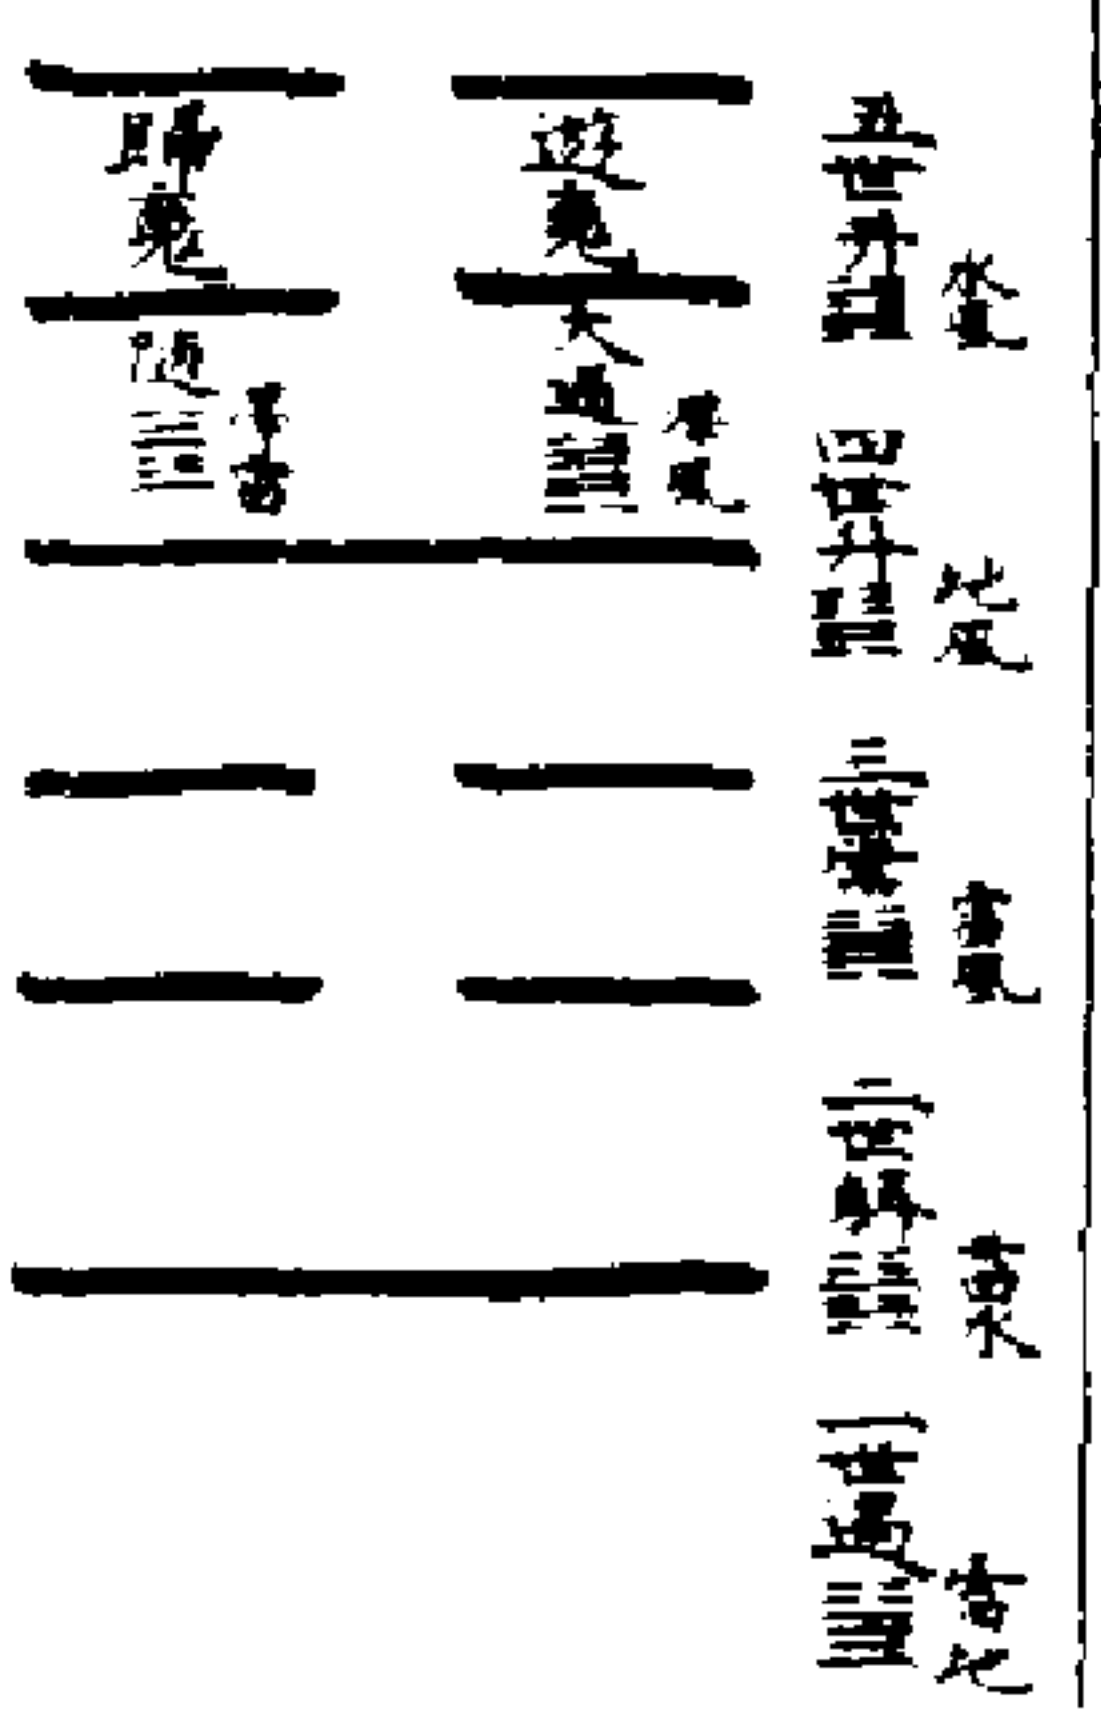 五世井
水風
四世升
地風
三世恒
雷風
二世解
雷水
一世
雷地
遊魂
大過
澤風
歸魂
隨
澤雷